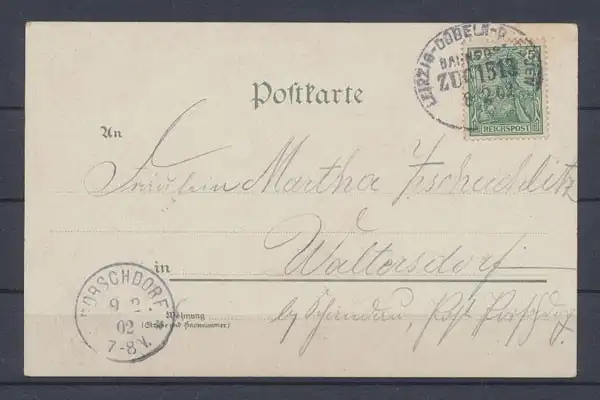 LEIPZIG-DÖBELN-DRESDEN
BAHNPOST
ZUG 1513
8 2 02
REICHSPOST
Postkarte
An
Fräulein Martha Zschachlitz
in Waltersdorf
PORSCHDORF
9 2
02
7-8V.
Wohnung
(Straße und Hausnummer)
by Schandau, Post Porschdorf